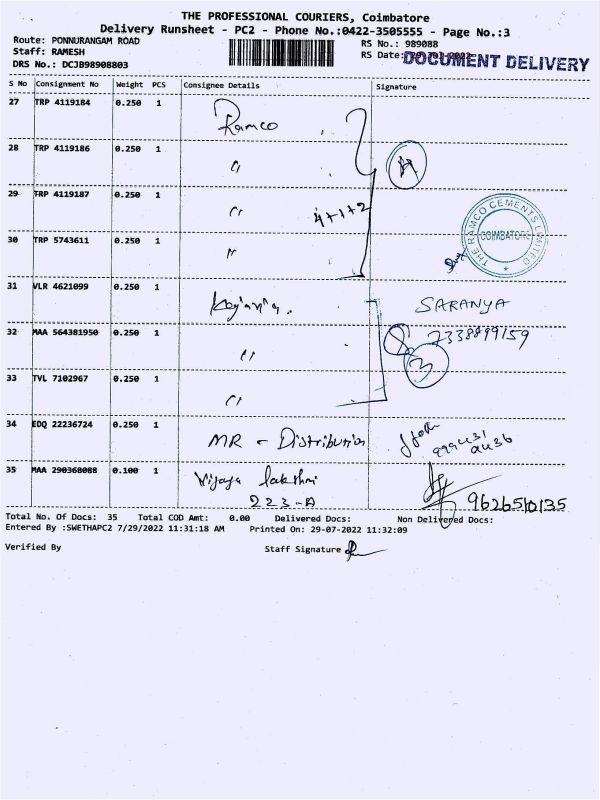 THE PROFESSIONAL COURIERS, Coimbatore
Delivery Runsheet - PC2 - Phone No.:0422-3505555 - Page No.:3
Route: PONNURANGAM ROAD
RS No.: 989088
Staff: RAMESH
RS Date:
DOCUMENT DELIVERY
DRS No.: DCJB98908803
S No Consignment No Weight PCS Consignee Details Signature
27 TRP 4119184 0.250 1 Ramco
28 TRP 4119186 0.250 1 "
4
29 TRP 4119187 0.250 1 "
4+1+2
THE RAMCO CEMENTS LIMITED
COIMBATORE
30 TRP 5743611 0.250 1 "
31 VLR 4621099 0.250 1 SARANYA
32 MAA 564381950 0.250 1 " 7338899159
3
33 TVL 7102967 0.250 1 "
34 EDQ 22236724 0.250 1 MR - Distribution
35 MAA 290368088 0.100 1 Vijaya lakshmi
223-A 9626510135
Total No. Of Docs: 35 Total COD Amt: 0.00 Delivered Docs: Non Delivered Docs:
Entered By :SWETHAPC2 7/29/2022 11:31:18 AM Printed On: 29-07-2022 11:32:09
Verified By Staff Signature